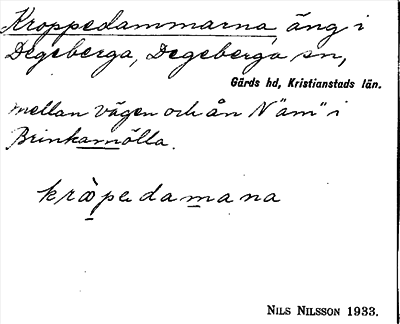 Kroppedammarna äng i
Degeberga, Degeberga sn,
Gärds hd, Kristianstads län.
mellan vägen och ån N "äm" i
Brinkamölla.
kròpedamana
NILS NILSSON 1933.